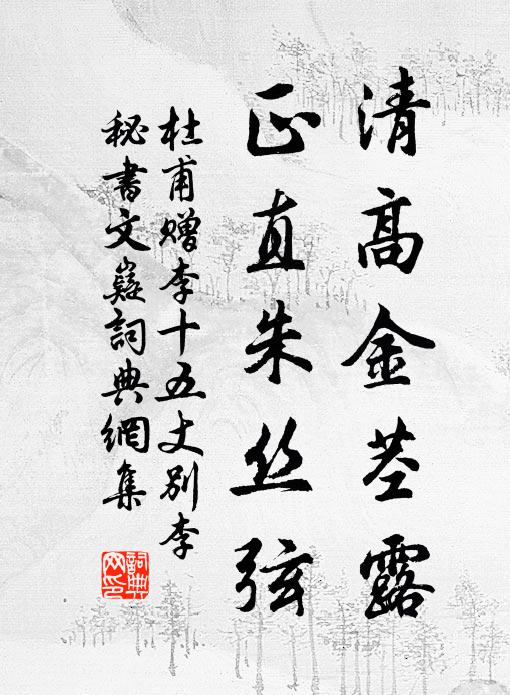 清高金茎露
正直朱丝弦
杜甫赠李十五丈别李
秘書文嶷詞典網集
詞典网印